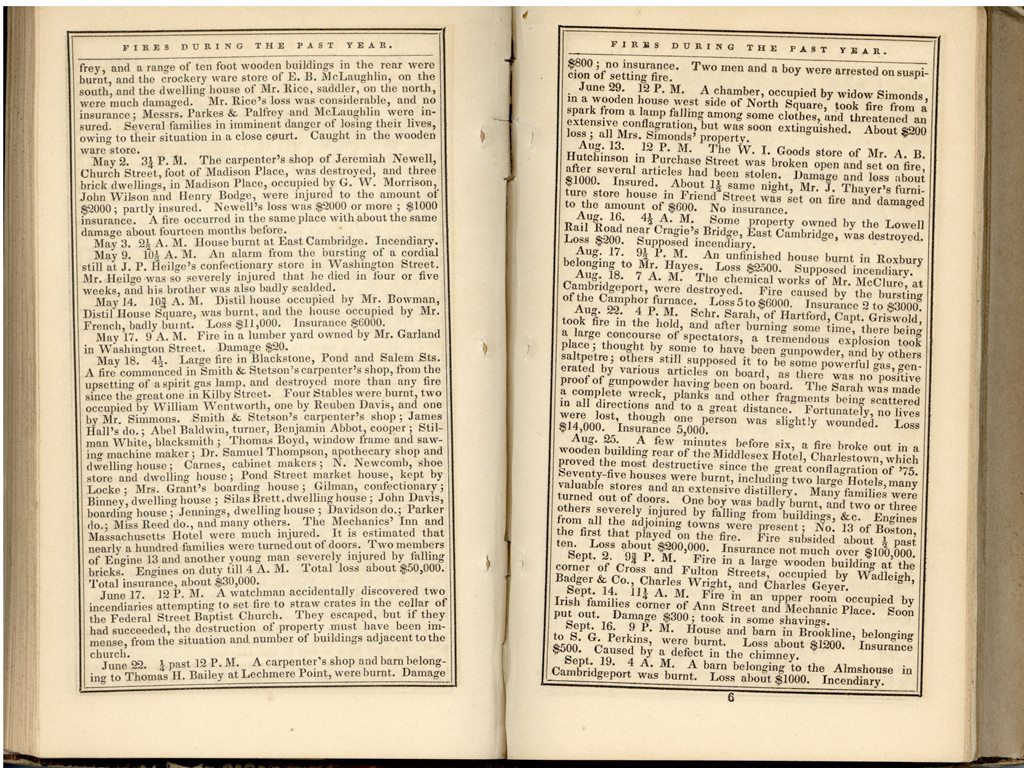 FIRES DURING THE PAST YEAR.
frey, and a range of ten foot wooden buildings in the rear were
burnt, and the crockery ware store of E. B. McLaughlin, on the
south, and the dwelling house of Mr. Rice, saddler, on the north,
were much damaged. Mr. Rice's loss was considerable, and no
insurance; Messrs. Parkes & Palfrey and McLaughlin were in-
sured. Several families in imminent danger of losing their lives,
owing to their situation in a close court. Caught in the wooden
ware store.
May 2. 3¼ P. M. The carpenter's shop of Jeremiah Newell,
Church Street, foot of Madison Place, was destroyed, and three
brick dwellings, in Madison Place, occupied by G. W. Morrison,
John Wilson and Henry Bodge, were injured to the amount of
$2000; partly insured. Newell's loss was $2000 or more; $1000
insurance. A fire occurred in the same place with about the same
damage about fourteen months before.
May 3. 2½ A. M. House burnt at East Cambridge. Incendiary.
May 9. 10½ A. M. An alarm from the bursting of a cordial
still at J. P. Heilge's confectionary store in Washington Street.
Mr. Heilge was so severely injured that he died in four or five
weeks, and his brother was also badly scalded.
May 14. 10¾ A. M. Distil house occupied by Mr. Bowman,
Distil House Square, was burnt, and the house occupied by Mr.
French, badly burnt. Loss $11,000. Insurance $6000.
May 17. 9 A. M. Fire in a lumber yard owned by Mr. Garland
in Washington Street. Damage $20.
May 18. 4½. Large fire in Blackstone, Pond and Salem Sts.
A fire commenced in Smith & Stetson's carpenter's shop, from the
upsetting of a spirit gas lamp, and destroyed more than any fire
since the great one in Kilby Street. Four Stables were burnt, two
occupied by William Wentworth, one by Reuben Davis, and one
by Mr. Simmons. Smith & Stetson's carpenter's shop; James
Hall's do.; Abel Baldwin, turner, Benjamin Abbot, cooper; Stil-
man White, blacksmith; Thomas Boyd, window frame and saw-
ing machine maker; Dr. Samuel Thompson, apothecary shop and
dwelling house; Carnes, cabinet makers; N. Newcomb, shoe
store and dwelling house; Pond Street market house, kept by
Locke; Mrs. Grant's boarding house; Gilman, confectionary;
Binney, dwelling house; Silas Brett, dwelling house; John Davis,
boarding house; Jennings, dwelling house; Davidson do.; Parker
do.; Miss Reed do., and many others. The Mechanics' Inn and
Massachusetts Hotel were much injured. It is estimated that
nearly a hundred families were turned out of doors. Two members
of Engine 13 and another young man severely injured by falling
bricks. Engines on duty till 4 A. M. Total loss about $50,000.
Total insurance, about $30,000.
June 17. 12 P. M. A watchman accidentally discovered two
incendiaries attempting to set fire to straw crates in the cellar of
the Federal Street Baptist Church. They escaped, but if they
had succeeded, the destruction of property must have been im-
mense, from the situation and number of buildings adjacent to the
church.
June 22. ¼ past 12 P. M. A carpenter's shop and barn belong-
ing to Thomas H. Bailey at Lechmere Point, were burnt. Damage
FIRES DURING THE PAST YEAR.
$800; no insurance. Two men and a boy were arrested on suspi-
cion of setting fire.
June 29. 12 P. M. A chamber, occupied by widow Simonds,
in a wooden house west side of North Square, took fire from a
spark from a lamp falling among some clothes, and threatened an
extensive conflagration, but was soon extinguished. About $200
loss; all Mrs. Simonds' property.
Aug. 13. 12 P. M. The W. I. Goods store of Mr. A. B.
Hutchinson in Purchase Street was broken open and set on fire,
after several articles had been stolen. Damage and loss about
$1000. Insured. About 1½ same night, Mr. J. Thayer's furni-
ture store house in Friend Street was set on fire and damaged
to the amount of $600. No insurance.
Aug. 16. 4½ A. M. Some property owned by the Lowell
Rail Road near Cragie's Bridge, East Cambridge, was destroyed.
Loss $200. Supposed incendiary.
Aug. 17. 9½ P. M. An unfinished house burnt in Roxbury
belonging to Mr. Hayes. Loss $2500. Supposed incendiary.
Aug. 18. 7 A. M. The chemical works of Mr. McClure, at
Cambridgeport, were destroyed. Fire caused by the bursting
of the Camphor furnace. Loss 5 to $6000. Insurance 2 to $3000.
Aug. 22. 4 P. M. Schr. Sarah, of Hartford, Capt. Griswold,
took fire in the hold, and after burning some time, there being
a large concourse of spectators, a tremendous explosion took
place; thought by some to have been gunpowder, and by others
saltpetre; others still supposed it to be some powerful gas, gen-
erated by various articles on board, as there was no positive
proof of gunpowder having been on board. The Sarah was made
a complete wreck, planks and other fragments being scattered
in all directions and to a great distance. Fortunately, no lives
were lost, though one person was slightly wounded. Loss
$14,000. Insurance 5,000.
Aug. 25. A few minutes before six, a fire broke out in a
wooden building rear of the Middlesex Hotel, Charlestown, which
proved the most destructive since the great conflagration of '75.
Seventy-five houses were burnt, including two large Hotels, many
valuable stores and an extensive distillery. Many families were
turned out of doors. One boy was badly burnt, and two or three
others severely injured by falling from buildings, &c. Engines
from all the adjoining towns were present; No. 13 of Boston,
the first that played on the fire. Fire subsided about ½ past
ten. Loss about $200,000. Insurance not much over $100,000.
Sept. 2. 9¾ P. M. Fire in a large wooden building at the
corner of Cross and Fulton Streets, occupied by Wadleigh,
Badger & Co., Charles Wright, and Charles Geyer.
Sept. 14. 11¼ A. M. Fire in an upper room occupied by
Irish families corner of Ann Street and Mechanic Place. Soon
put out. Damage $300; took in some shavings.
Sept. 16. 9 P. M. House and barn in Brookline, belonging
to S. G. Perkins, were burnt. Loss about $1200. Insurance
$500. Caused by a defect in the chimney.
Sept. 19. 4 A. M. A barn belonging to the Almshouse in
Cambridgeport was burnt. Loss about $1000. Incendiary.
6